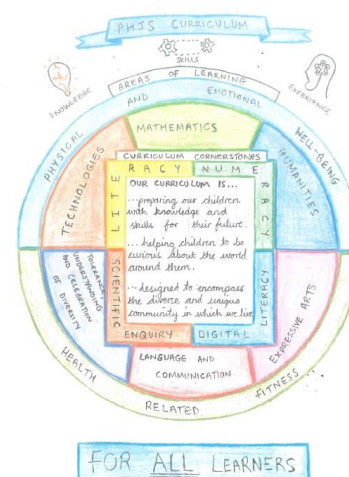 PHJS CURRICULUM
SKILLS
KNOWLEDGE
EXPERIENCE
AREAS OF LEARNING
PHYSICAL AND EMOTIONAL WELL-BEING
MATHEMATICS
TECHNOLOGIES
HUMANITIES
CURRICULUM CORNERSTONES
LITERACY
NUMERACY
OUR CURRICULUM IS...
...preparing our children
with knowledge and
skills for their future.
...helping children to be
curious about the world
around them.
...designed to encompass
the diverse and unique
community in which we live
SCIENTIFIC ENQUIRY
DIGITAL LITERACY
TOLERANCE,
UNDERSTANDING
AND CELEBRATION
OF DIVERSITY
LANGUAGE AND
COMMUNICATION
EXPRESSIVE ARTS
HEALTH RELATED FITNESS
FOR ALL LEARNERS